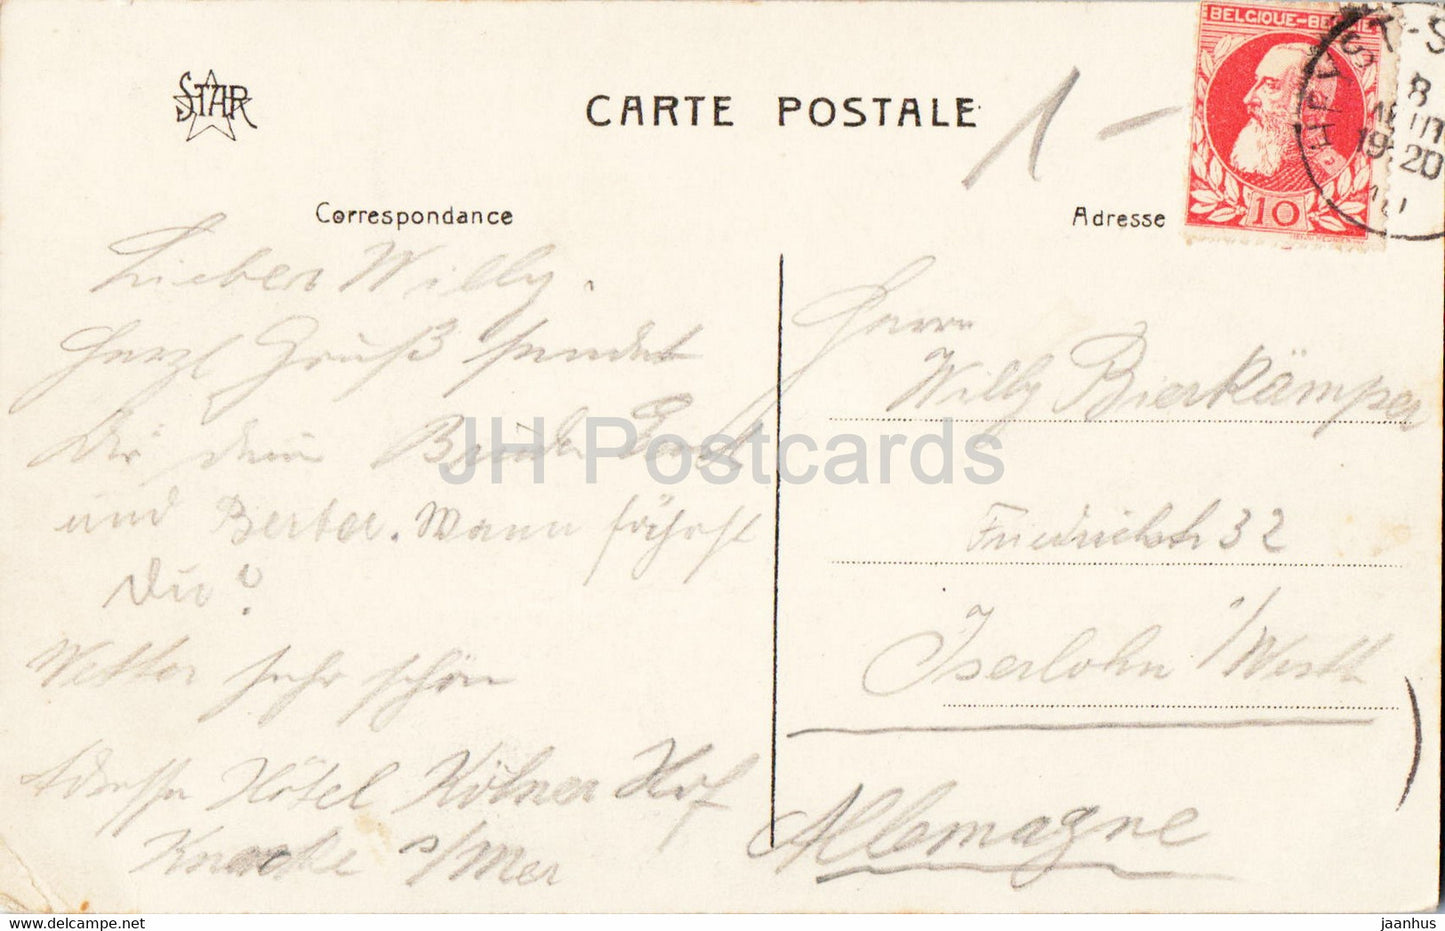 STAR
CARTE POSTALE
1 -
BELGIQUE-BELGIË
10
HEYST-S
8
19-20
Correspondance
Adresse
Lieber Willy.
Herzl Gruß sendet
Dir dein Bruder
und Berta. Wann fährst
Du?
Wetter sehr schön
Adresse Hôtel Kölner Hof
Knocke s/Mer
Herrn
Willy Bierkämper
Friedrichstr 32
Iserlohn i/Westf
Allemagne
JH Postcards
https://jhpostcards.com
jaanhus